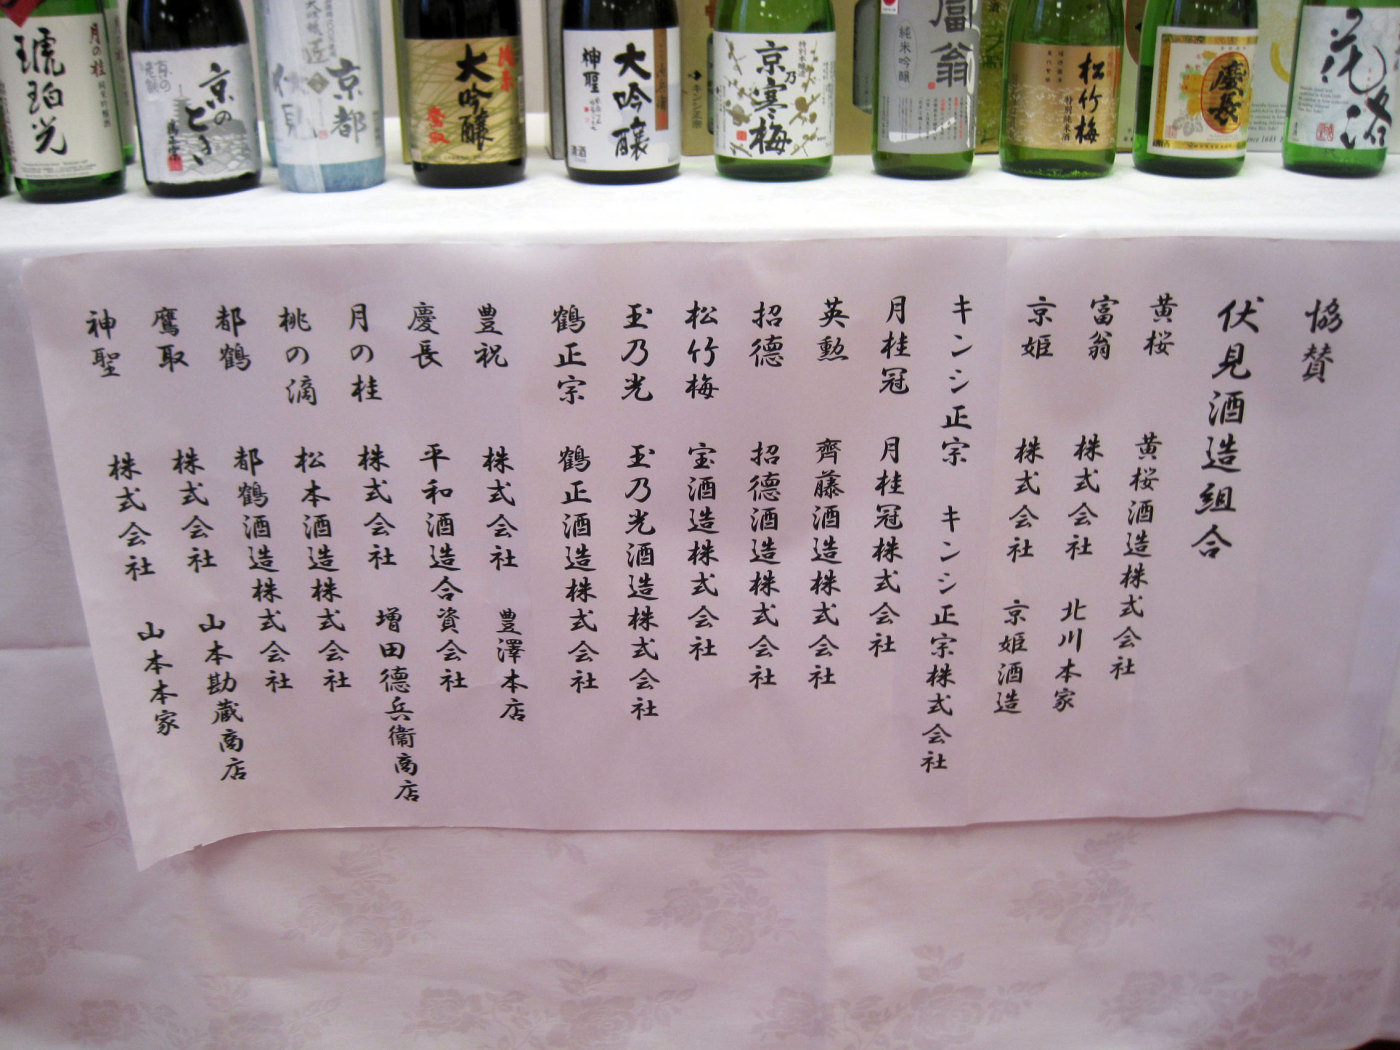 月の桂
琥珀光
純米吟醸酒
京の
どき
京都
伏見
大吟醸
鷹取
大吟醸
神聖
清酒
キンシ正宗
特別本醸造
京乃寒梅
富翁
純米吟醸
松竹梅
特別純米酒
慶長
花洛
協賛
伏見酒造組合
黄桜 黄桜酒造株式会社
富翁 株式会社 北川本家
京姫 株式会社 京姫酒造
キンシ正宗 キンシ正宗株式会社
月桂冠 月桂冠株式会社
英勲 齊藤酒造株式会社
招德 招德酒造株式会社
松竹梅 宝酒造株式会社
玉乃光 玉乃光酒造株式会社
鶴正宗 鶴正酒造株式会社
豊祝 株式会社 豊澤本店
慶長 平和酒造合資会社
月の桂 株式会社 増田德兵衞商店
桃の滴 松本酒造株式会社
都鶴 都鶴酒造株式会社
鷹取 株式会社 山本勘蔵商店
神聖 株式会社 山本本家